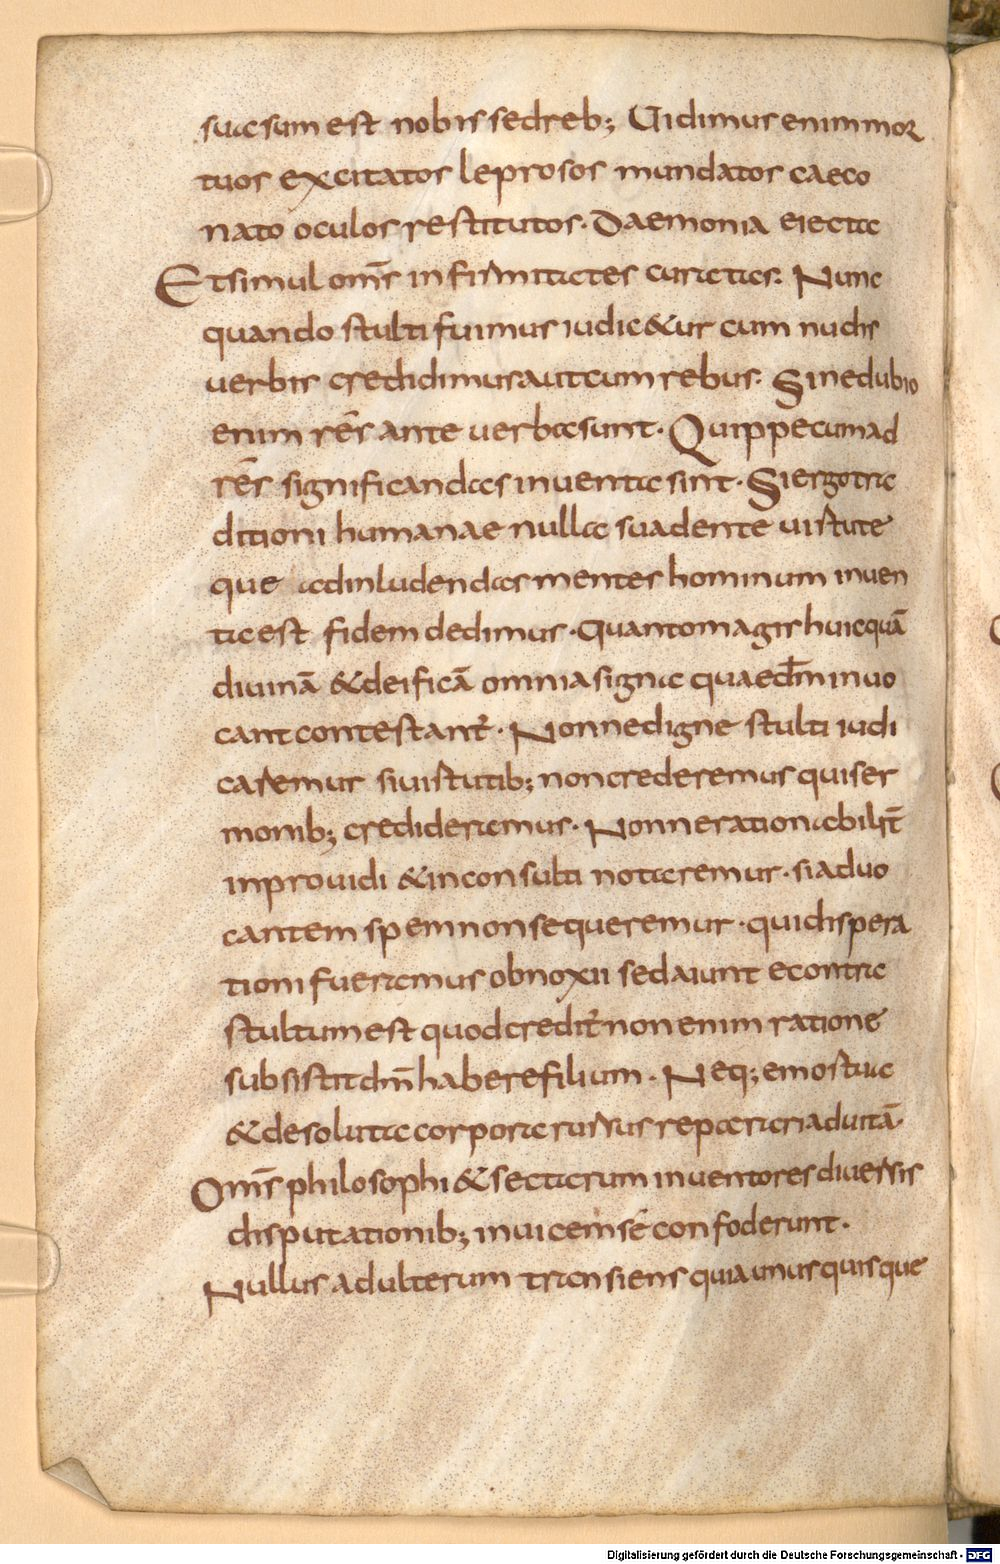 suasum est nobis sed reb; Uidimus enim mor
tuos excitatos leprosos mundatos caeco
nato oculos restitutos. Daemonia eiecta
Et simul om̅s infirmitates curatas. Nunc
quando stulti fuimus iudic&ur cum nudis
uerbis credidimus aut cum rebus. Sine dubio
enim re̅s ante uerba sunt. Quippe cum ad
re̅s significandas inuenta sint. Si ergo tra
ditioni humanae nulla suadente uirtute
que ad inludendas mentes hominum inuen
ta est fidem dedimus. Quanto magis huic quā
diuinā & deificā omnia signa quae dm̅ inuo
cant contestant᷑. Nonne digne stulti iudi
caremur si uirtutib; non crederemus qui ser
monib; credideramus. Nonne rationabilit̅
inprouidi & inconsulti notaremur. si aduo
cantem spem non sequeremur. qui dispera
tioni fueramus obnoxii sed aiunt econtra
stultum est quod credit᷑ non enim ratione
subsistit dm̅ habere filium. Neq; e mortua
& desoluta corpora rursus reparari ad uitā.
Om̅s philosophi & sectarum inuentores diuersis
disputationib; inuicem se confoderunt.
Nullus ad ulterum transiens quia unusquisque
Digitalisierung gefördert durch die Deutsche Forschungsgemeinschaft - DFG